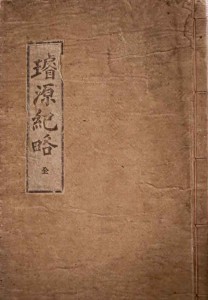 璿源紀略
全